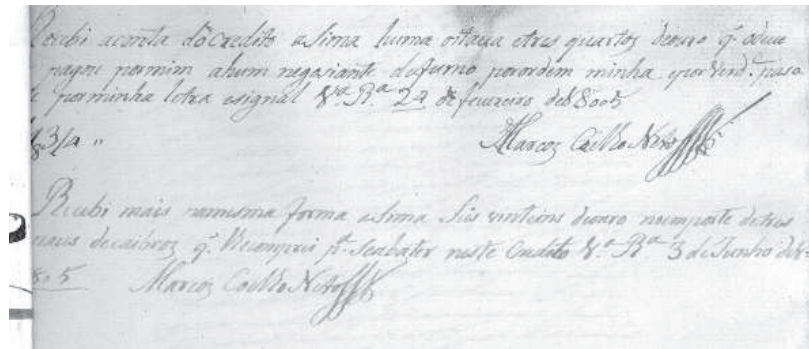 Recebi aconta do Credito asima huma oitava etres quartos deouro q.' odice
pagou pormim ahum negociante defumo porordem minha epor Verd.e paso
e porminha letra esignal V.a R.a 24 de fevereiro de 8005
8.a 3/4 "
Marcos Coelho Neto
Recebi mais namesma forma asima Seis vinteins deouro noimporte detres
de caibros q.' lhe comprei p.a Seabater neste Credito V.a R.a 3 de Junho de
805 Marcos Coelho Neto